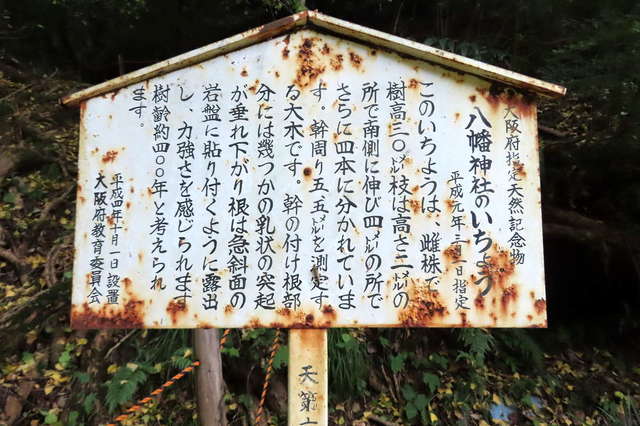 大阪府指定天然記念物
八幡神社のいちょう
平成元年三月三一日指定
このいちょうは、雌株で、
樹高三〇㍍、枝は高さ二㍍の
所で南側に伸び四㍍の所で
さらに四本に分かれていま
す。幹周り五、五㍍を測定す
る大木です。幹の付け根部
分には幾つかの乳状の突起
が垂れ下がり根は急斜面の
岩盤に貼り付くように露出
し、力強さを感じられます
樹齢約四〇〇年と考えられ
ます。
平成四年十月一日設置
大阪府教育委員会
天第